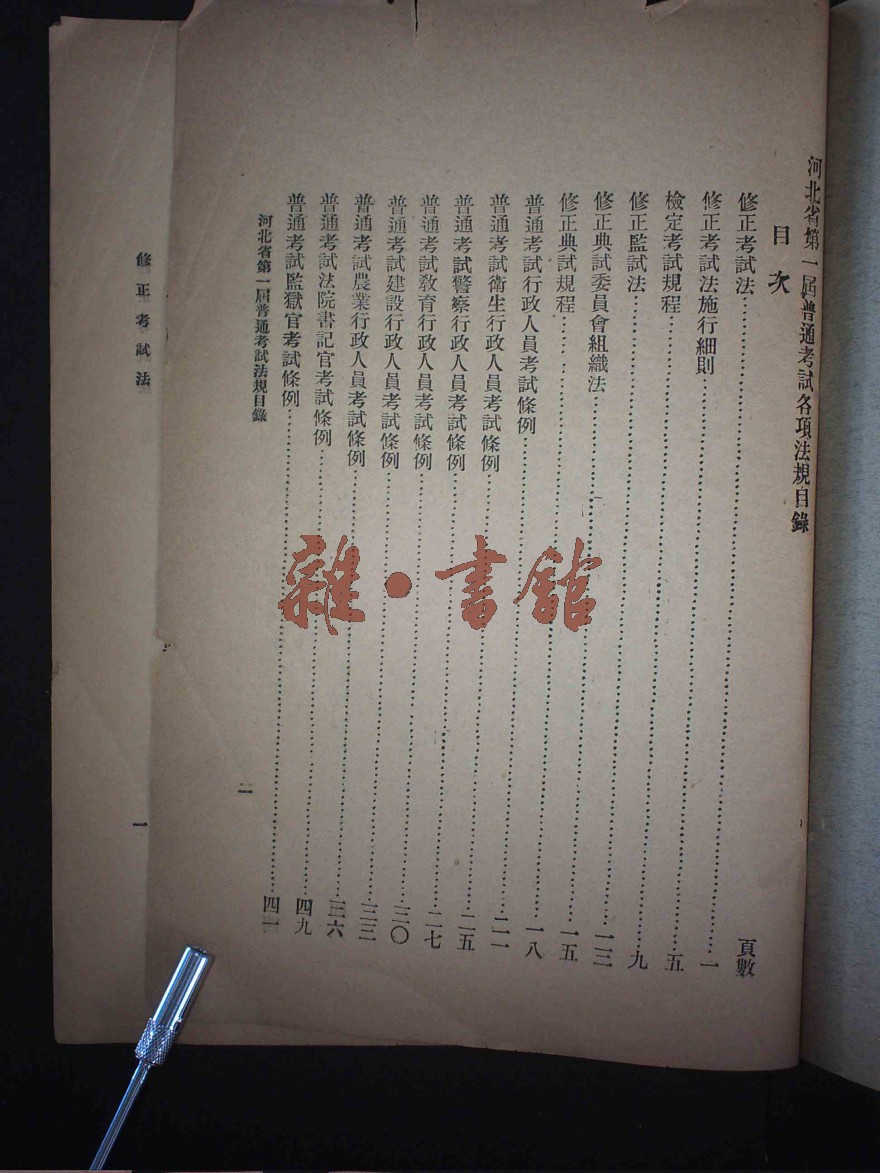 河北省第一屆普通考試各項法規目錄
目次
頁數
修正考試法……一
修正考試法施行細則……五
檢定考試規程……九
修正監試法……一三
修正典試委員會組織法……一五
修正典試規程……一八
普通考試行政人員考試條例……二一
普通考試衛生行政人員考試條例……二五
普通考試警察行政人員考試條例……二七
普通考試教育行政人員考試條例……三〇
普通考試建設行政人員考試條例……三三
普通考試農業行政人員考試條例……三六
普通考試法院書記官考試條例……四九
普通考試監獄官考試條例……四一
河北省第一屆普通考試法規目錄
二
修正考試法
一
雜·書館